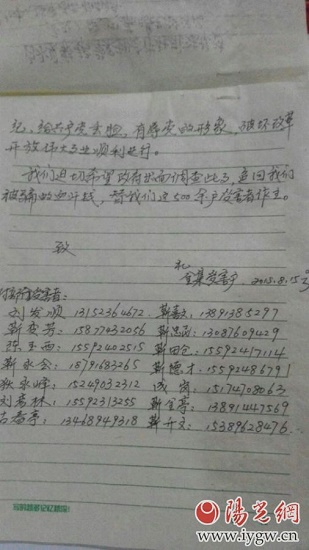 纪，给共产党丢脸，有辱党的形象，破坏改革
开放伟大事业顺利进行。
我们迫切希望政府出面调查此事，追回我们
被骗的血汗钱，替我们这500余户受害者作主。
致
礼
全集资户 2015.8.15号
受害者：
刘发顺 13152364672 靳 13891385297
靳 15877432056 靳 13087609429
陈玉西 15592402515 靳田仓 15592417114
靳永会 18791683265 靳德才 15592486791
狄永峰 15249032312 成 15174708063
刘秀林 15592313255 靳全亭 13891447569
吉春亭 13468949318 靳升文 15389628476
阳光網
www.iygw.cn